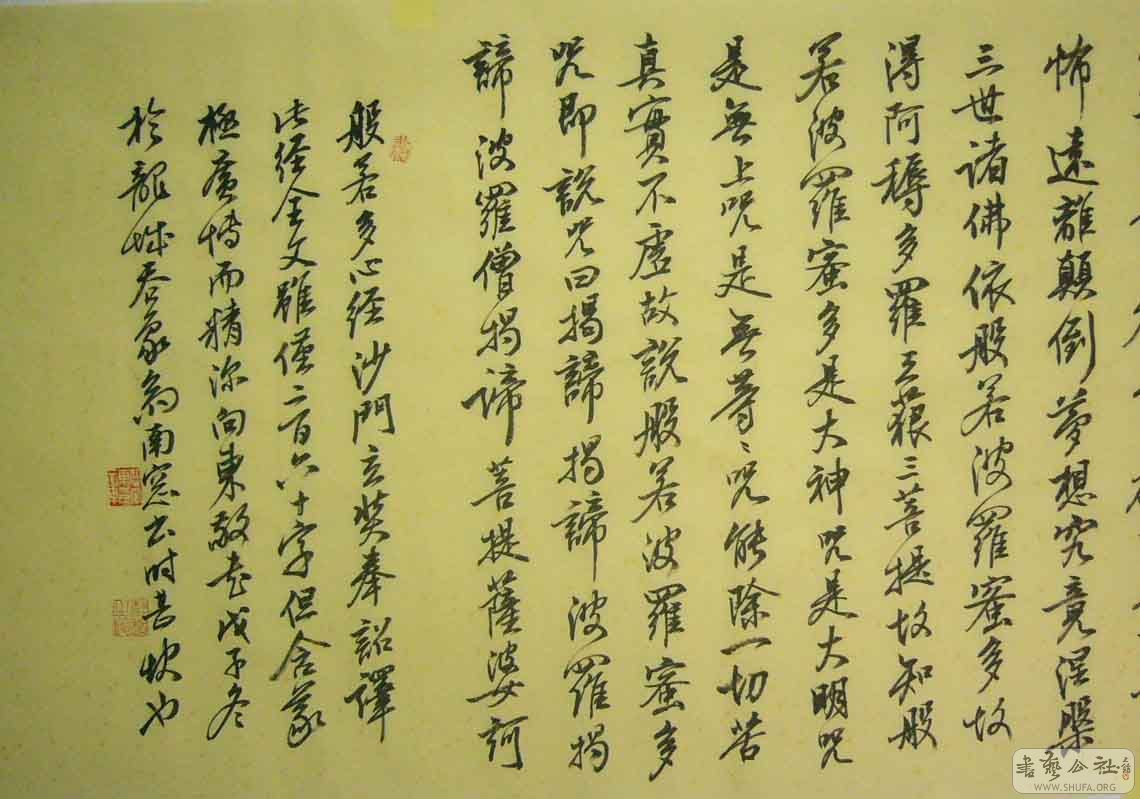 怖遠離顛倒夢想究竟涅槃
三世诸佛依般若波羅蜜多故
得阿耨多羅三藐三菩提故知般
若波羅蜜多是大神咒是大明咒
是無上咒是無等〻咒能除一切苦
真實不虛故説般若波羅蜜多
咒即説咒曰揭諦揭諦波羅揭
諦波羅僧揭諦菩提薩婆訶
般若多心経沙門玄奘奉詔譯
此経全文雖僅二百六十字但含義
極廣博而精深向東敬書戊子冬
於龍城吞象南窓書时甚快也
書藝公社
WWW.SHUFA.ORG